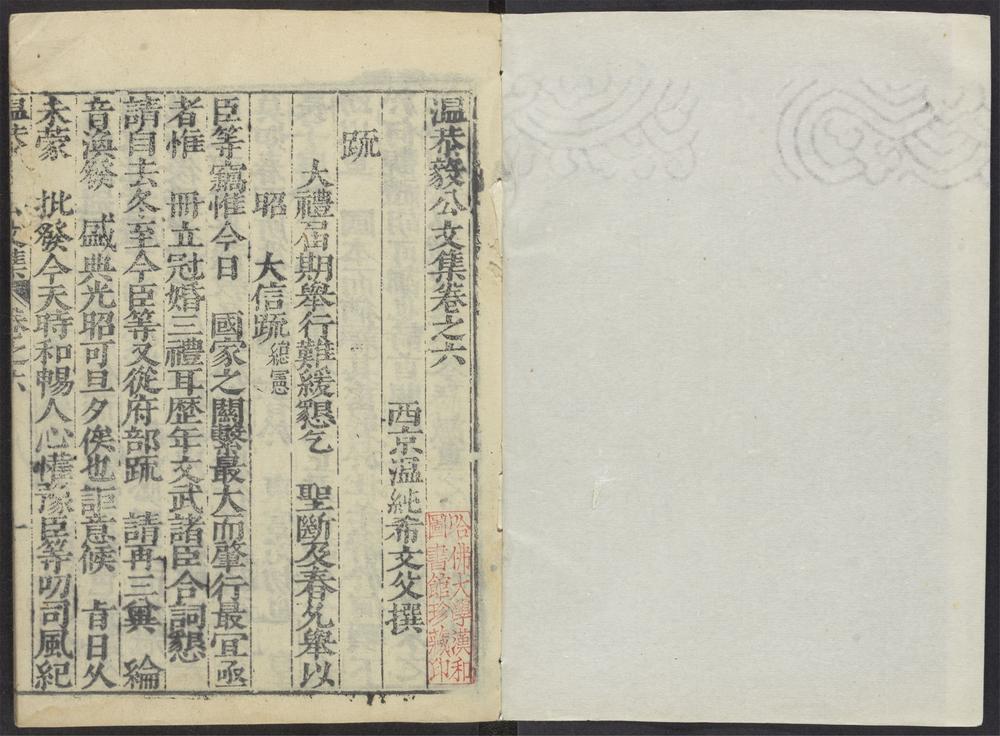 温恭毅公文集卷之六
西京温純希文父撰
疏
大禮屆期舉行難緩懇乞　聖斷及春允舉以
昭　大信疏總憲
臣等竊惟今日　國家之關繫最大而肇行最宜亟
者惟　冊立冠婚三禮耳歷年文武諸臣合詞懇
請自去冬至今臣等又從府部疏　請再三兾　綸
音渙發　盛典光昭可旦夕俟也詎意候　旨日久
未蒙　批發今天時和暢人心懽豫臣等叨司風紀
温恭　公文集　卷之六　一
哈佛大學漢和
圖書館珍藏印